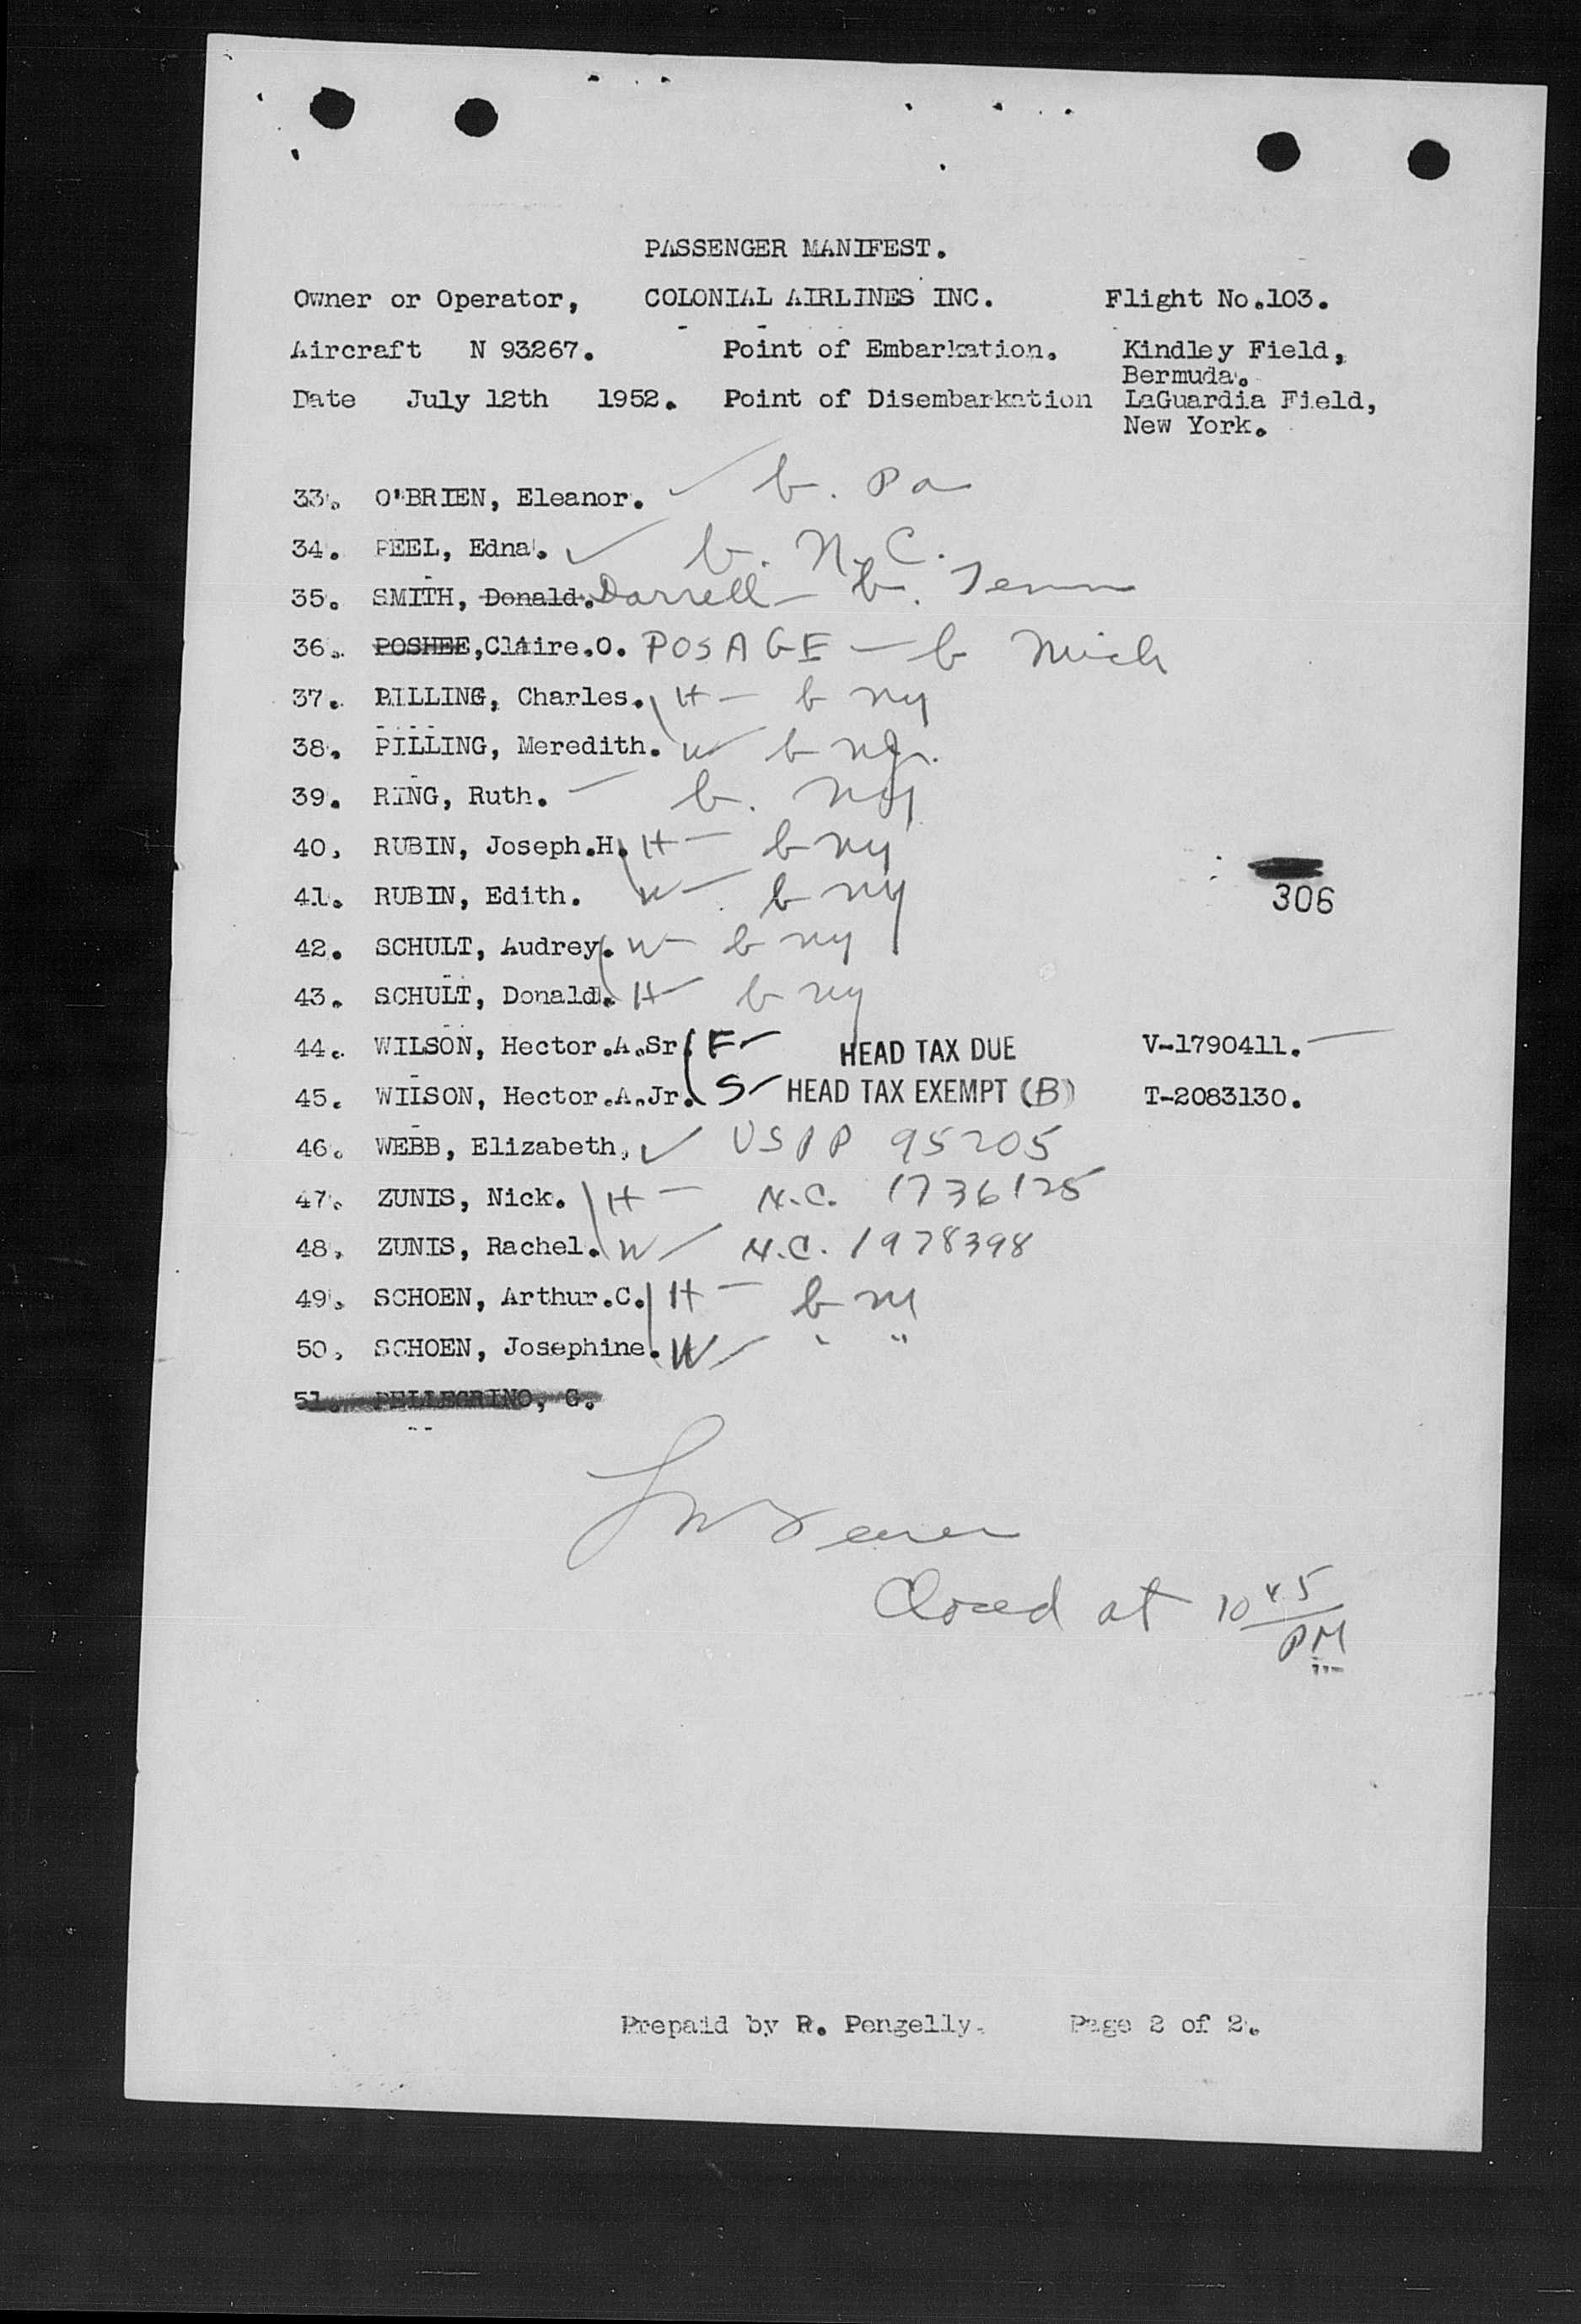 PASSENGER MANIFEST.
Owner or Operator, COLONIAL AIRLINES INC. Flight No.103.
Aircraft N 93267. Point of Embarkation. Kindley Field,
Bermuda.
Date July 12th 1952. Point of Disembarkation LaGuardia Field,
New York.
33. O'BRIEN, Eleanor. b. Pa
34. PEEL, Edna. b. N.C.
35. SMITH, Donald. Darrell b. Tenn
36. POSHEE, Claire.O. POSAGE b Mich
37. PILLING, Charles. H b ny
38. PILLING, Meredith. W b nJ.
39. RING, Ruth. b. ny
40. RUBIN, Joseph.H. H b ny
41. RUBIN, Edith. W b ny
306
42. SCHULT, Audrey. W b ny
43. SCHULT, Donald. H b ny
44. WILSON, Hector.A.Sr. F HEAD TAX DUE V-1790411.
45. WIISON, Hector.A.Jr. S HEAD TAX EXEMPT (B) T-2083130.
46. WEBB, Elizabeth. USPP 95205
47. ZUNIS, Nick. H N.C. 1736125
48. ZUNIS, Rachel. W N.C. 1978398
49. SCHOEN, Arthur.C. H b
50. SCHOEN, Josephine. W " "
51. PELLEGRINO, G.
Closed at 10 45
PM
Prepaid by R. Pengelly. Page 2 of 2.